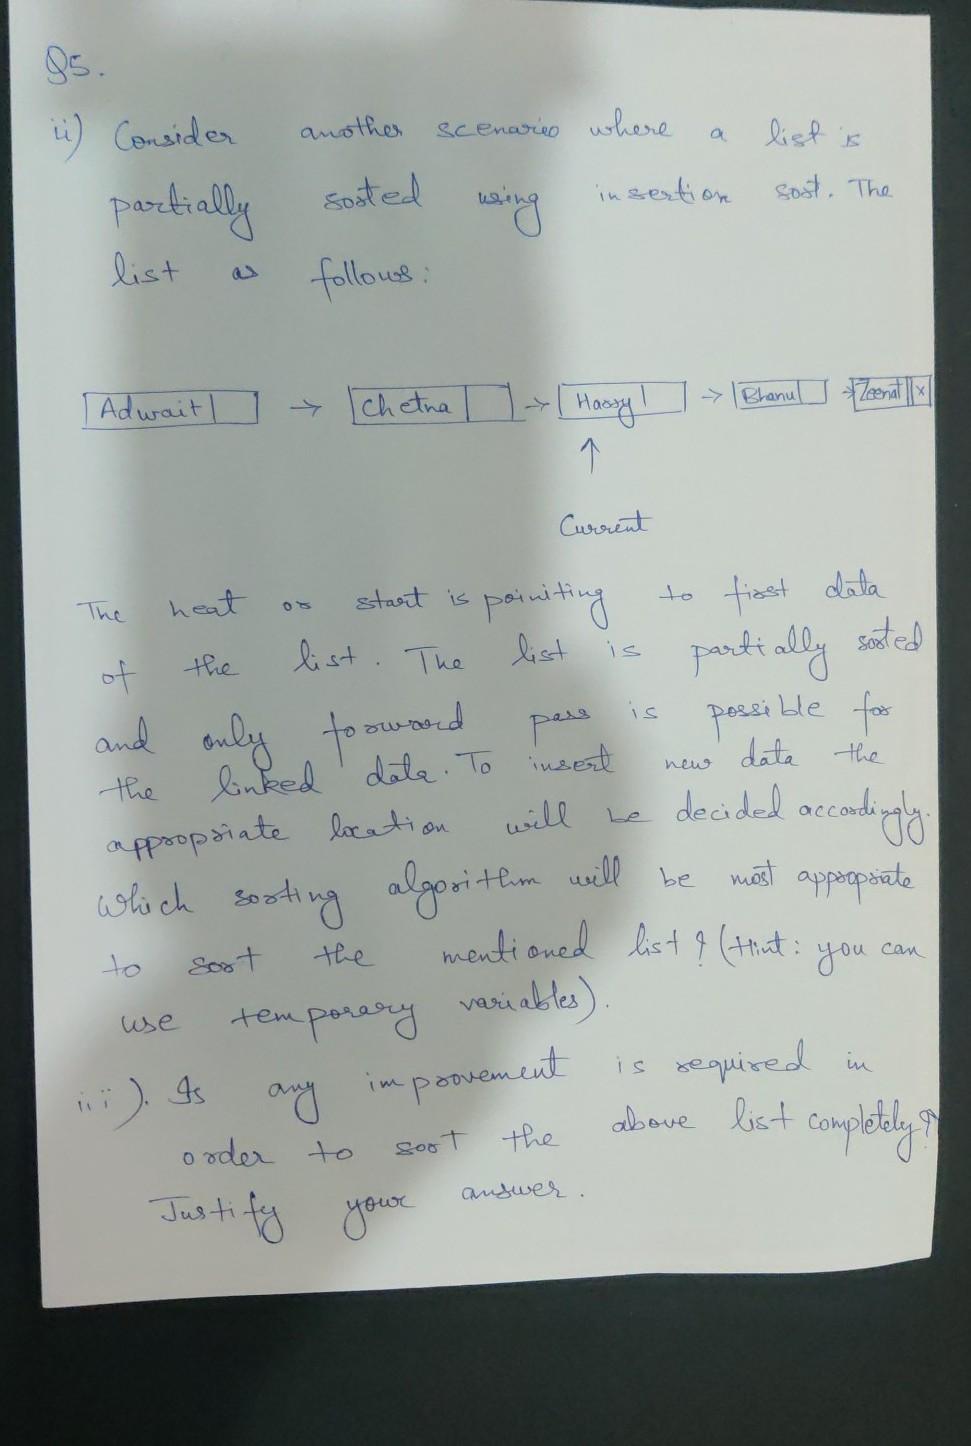 Q5.
ii) Consider another scenario where a list is
partially sorted using insertion sort. The
list as follows:
Adwait → Chetna → Harry → Bhanu → Zeenat x
↑
Current
The heat or start is poiniting to first data
of the list. The list is partially sorted
and only forward pass is possible for
the linked data. To insert new data the
appropriate location will be decided accordingly.
Which sorting algorithm will be most appropriate
to sort the mentioned list? (Hint: you can
use temporary variables).
iii). Is any improvement is required in
order to sort the above list completely?
Justify your answer.